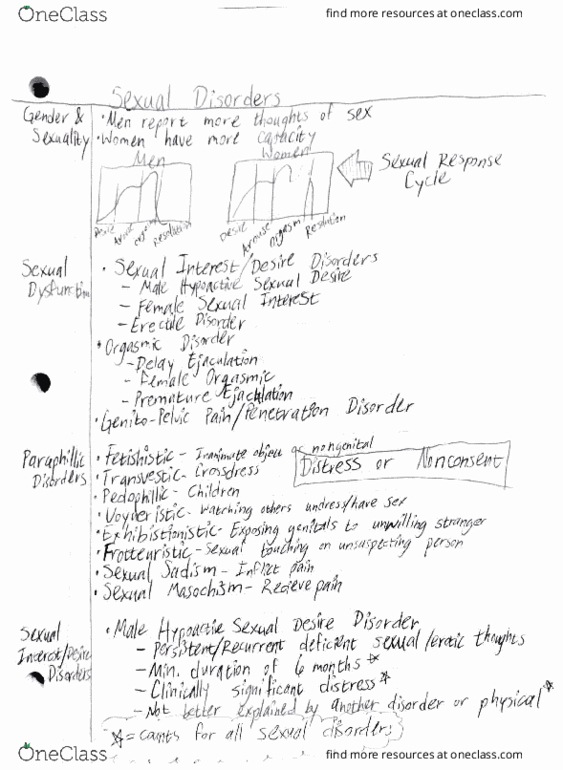 OneClass
find more resources at oneclass.com
Sexual Disorders
Gender & Sexuality
• Men report more thoughts of sex
• Women have more capacity
Men
Women
Sexual Response Cycle
Desire Arouse Orgasm Resolution
Desire Arouse Orgasm Resolution
Sexual Dysfunction
• Sexual Interest/Desire Disorders
- Male Hypoactive Sexual Desire
- Female Sexual Interest
- Erectile Disorder
• Orgasmic Disorder
- Delay Ejaculation
- Female Orgasmic
- Premature Ejaculation
• Genito-Pelvic Pain/Penetration Disorder
Paraphillic Disorders
• Fetishistic - Inanimate object or nongenital
Distress or Nonconsent
• Transvestic - Crossdress
• Pedophillic - Children
• Voyderistic - Watching others undress/have sex
• Exhibistionistic - Exposing genitals to unwilling stranger
• Frotteuristic - Sexual touching on unsaspecting person
• Sexual Sadism - Inflict pain
• Sexual Masochism - Recieve pain
Sexual Interest/Desire Disorders
• Male Hypoactive Sexual Desire Disorder
- Persistent/Recurrent deficient sexual/erotic thoughts
- Min. duration of 6 months *
- Clinically significant distress *
- Not better explained by another disorder or physical *
* = counts for all sexual disorders
OneClass
find more resources at oneclass.com